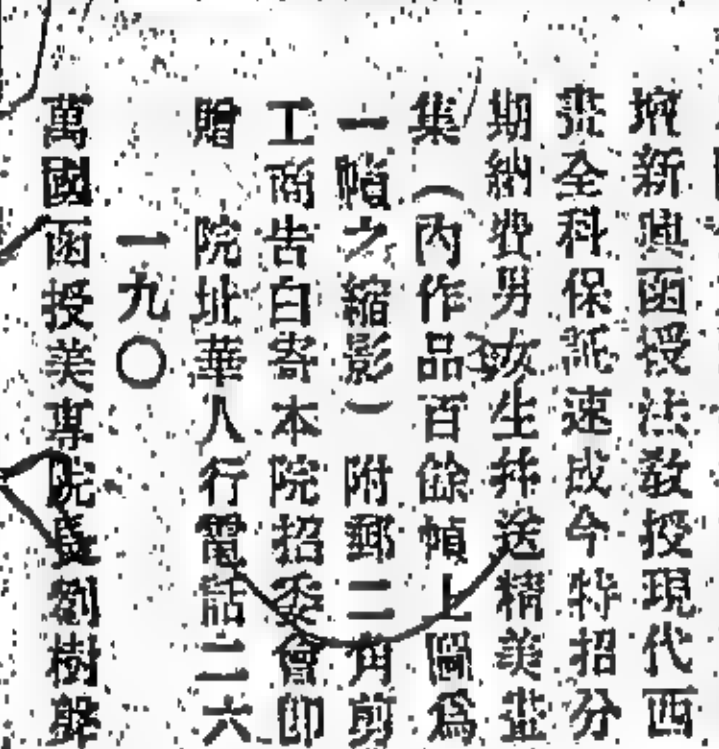 新興函授法教授現代西
畫全科保証速成今特招分
期納費男女生并送精美畫
集(內作品百餘幀上圖爲
一幀之縮影)附郵二角剪
工商告白寄本院招委會卽
贈 院址華人行電話二六
一九〇
萬國函授美專院長劉樹聲